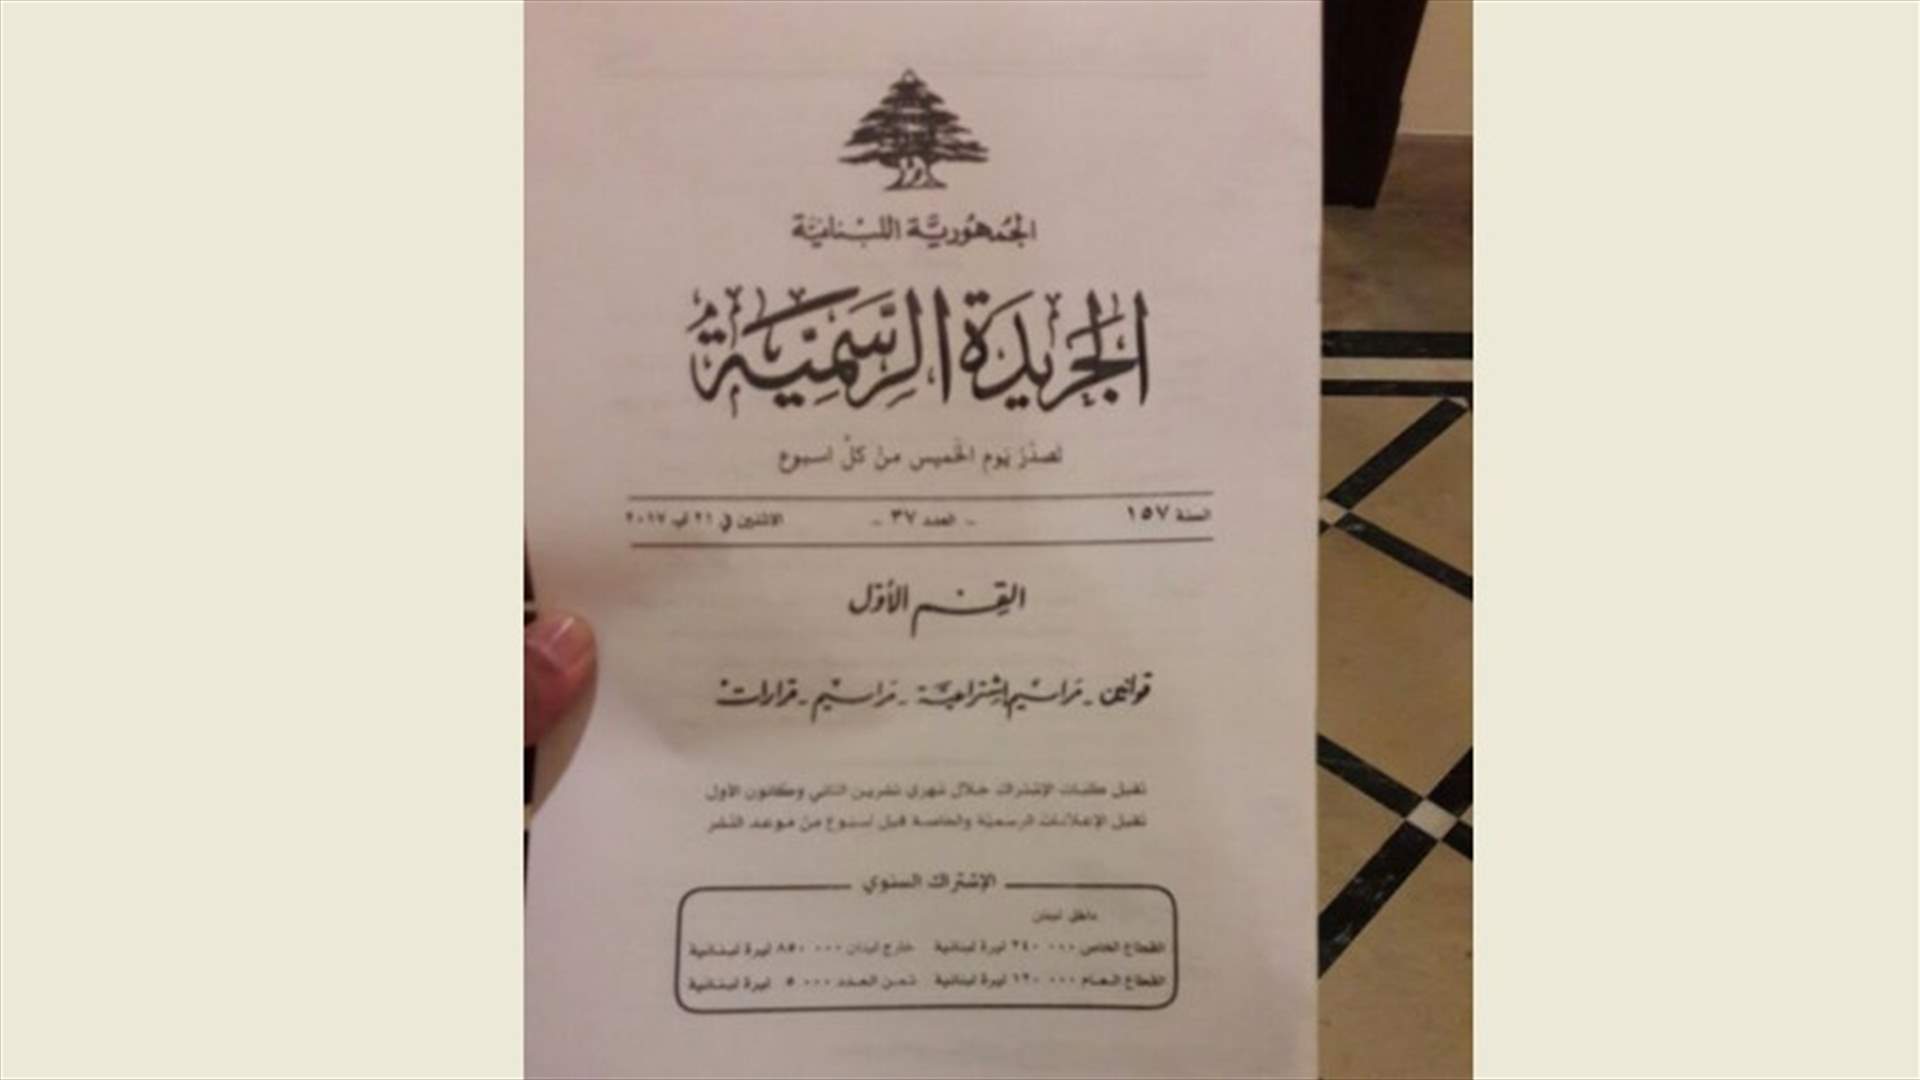 الجمهورية اللبنانية
الجريدة الرسمية
تصدر يوم الخميس من كل اسبوع
السنة ١٥٧ - العدد ٣٧ - الاثنين في ٢١ آب ٢٠١٧
القسم الأول
قوانين - مراسيم اشتراعية - مراسيم - قرارات
تقبل طلبات الإشتراك خلال شهري تشرين الثاني وكانون الأول
تقبل الإعلانات الرسمية والخاصة قبل اسبوع من موعد النشر
الإشتراك السنوي
داخل لبنان
القطاع الخاص ٢٤٠ ٠٠٠ ليرة لبنانية خارج لبنان ٨٥٠ ٠٠٠ ليرة لبنانية
القطاع العام ١٢٠ ٠٠٠ ليرة لبنانية ثمن العدد ٥ ٠٠٠ ليرة لبنانية